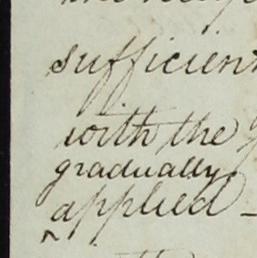 sufficient
with the
gradually
applied –